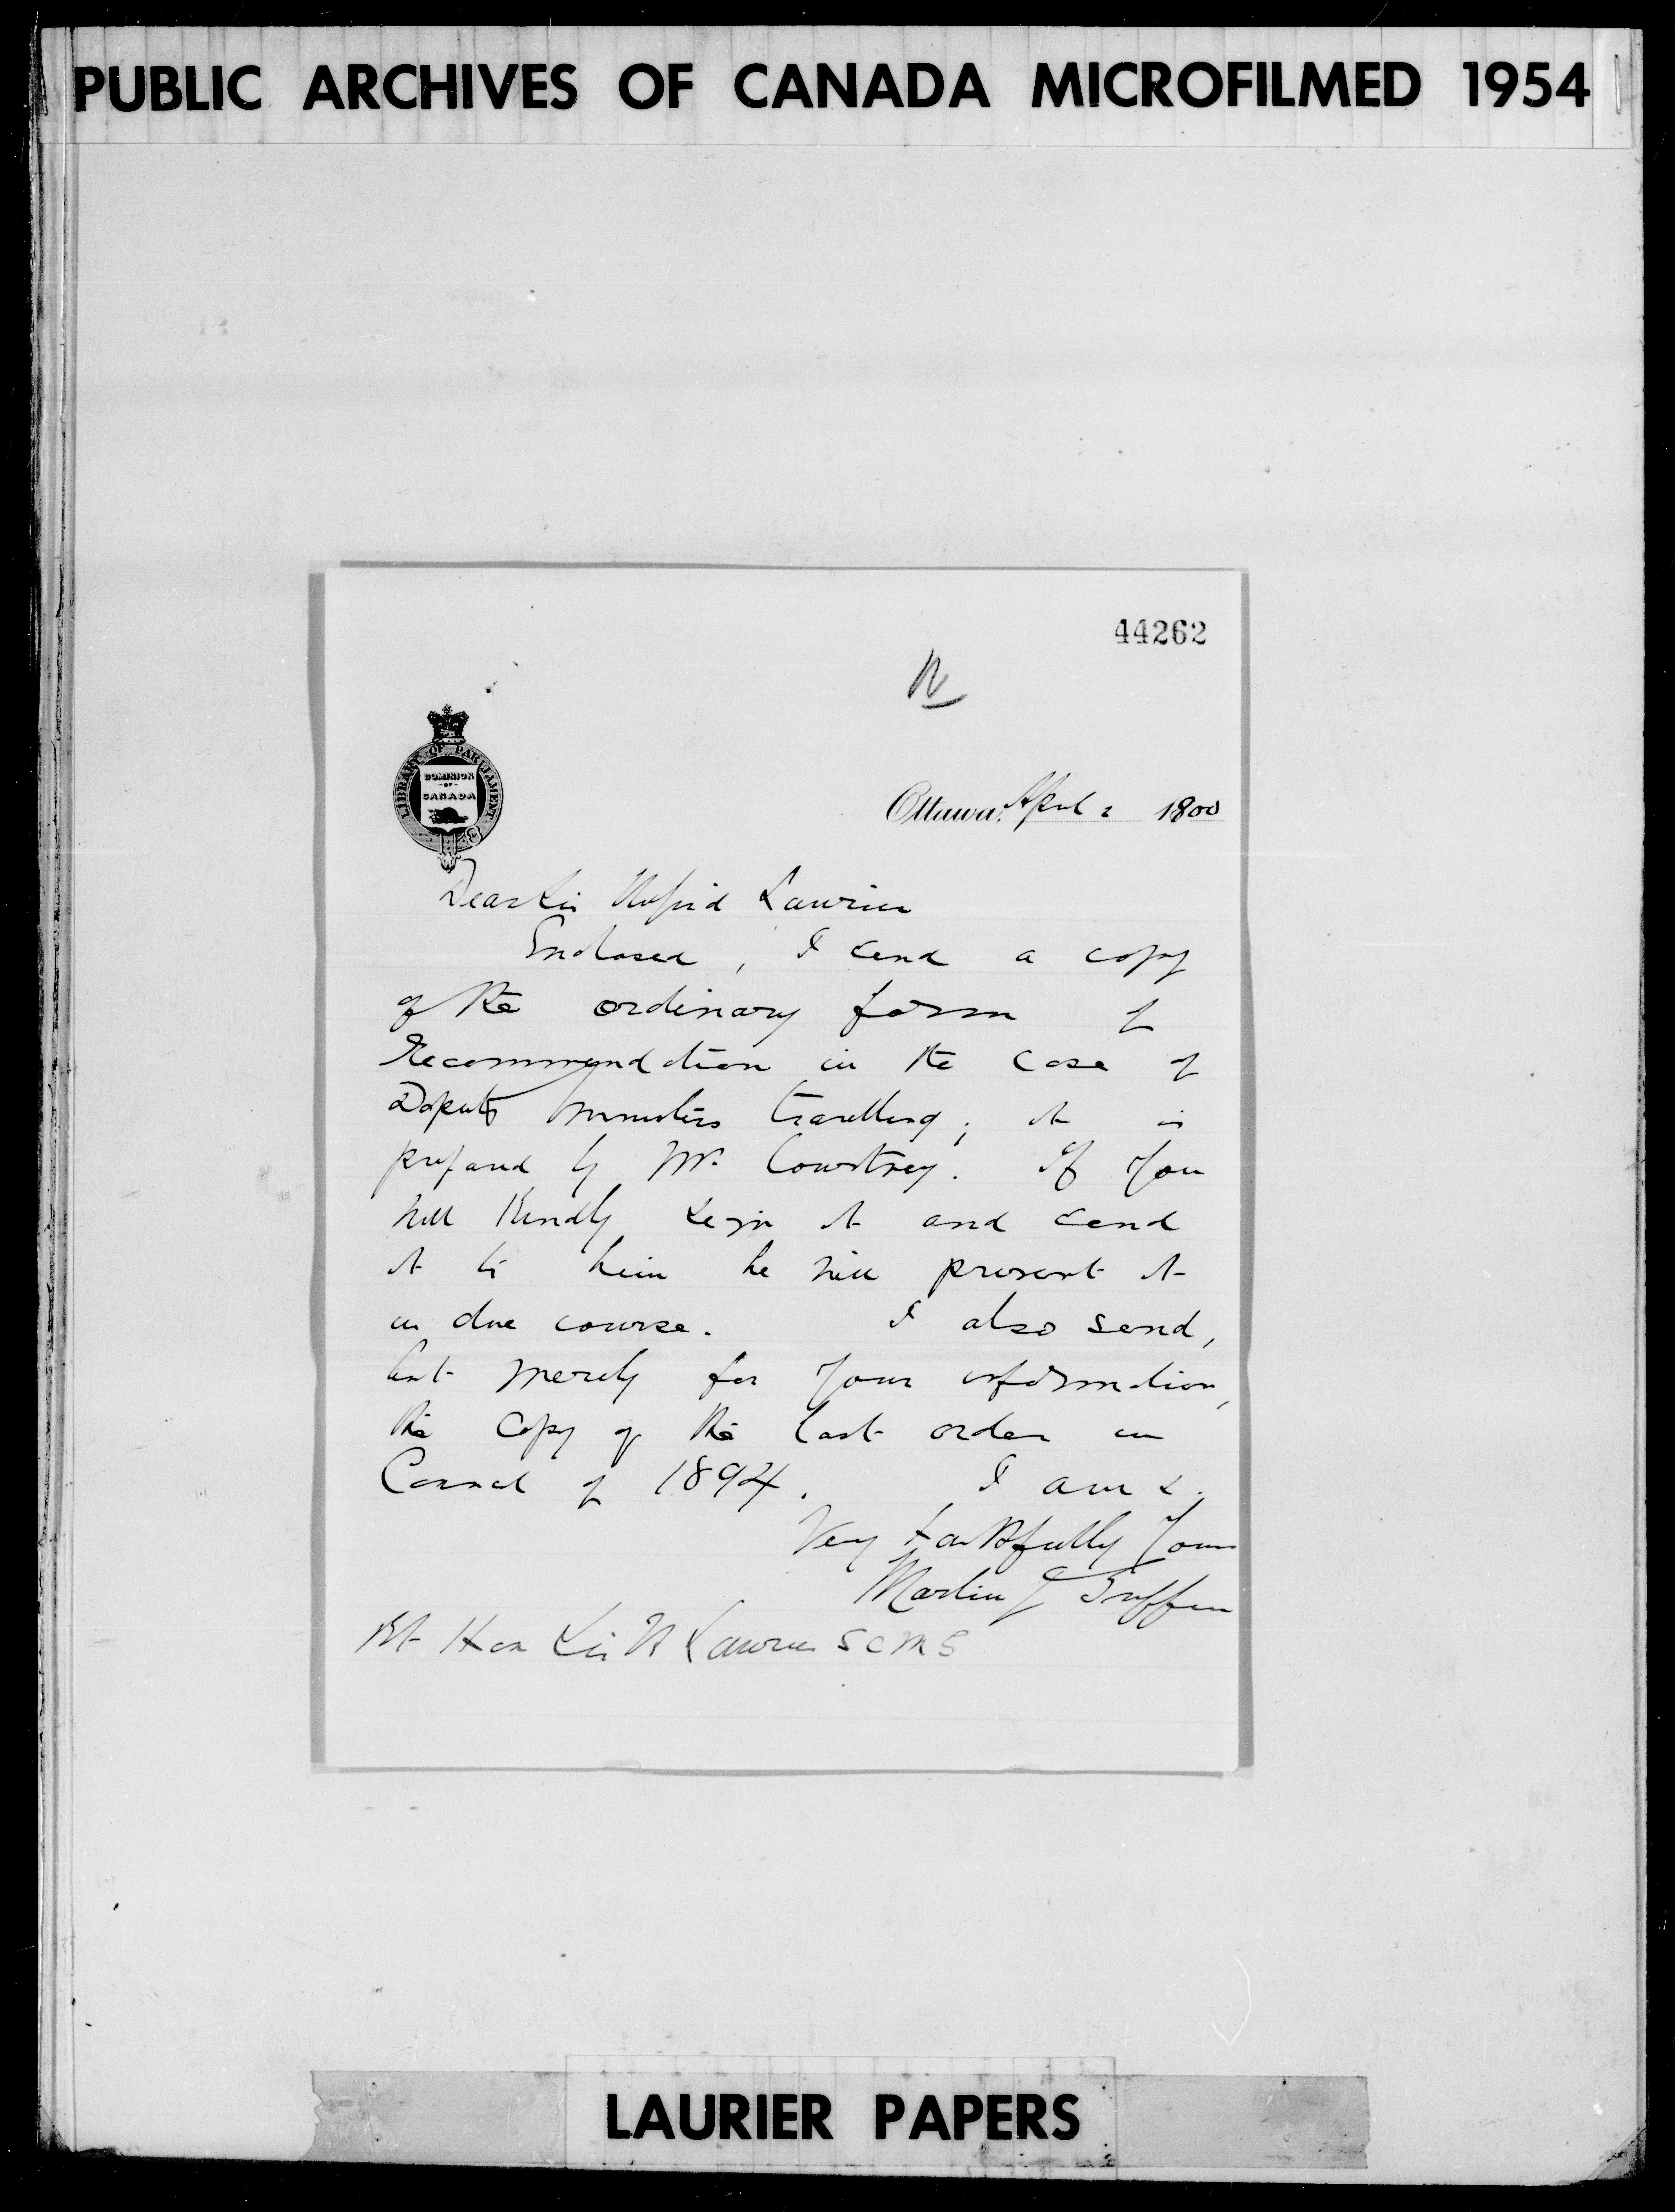 PUBLIC ARCHIVES OF CANADA MICROFILMED 1954
44262
LIBRARY OF PARLIAMENT
DOMINION
OF
CANADA
Ottawa, April 2 1800
Dear Sir Wilfrid Laurier
Enclosed, I send a copy
of the ordinary form of
Recommendation in the case of
Deputy Ministers travelling; it is
prepared by Mr. Courtney. If you
will kindly sign it and send
it to him he will present it
in due course. I also send,
but merely for your information,
the copy of the last order in
Council of 1894. I am &.
Very faithfully Yours
Martin J Griffin
Rt Hon Sir W Laurier GCMG
LAURIER PAPERS